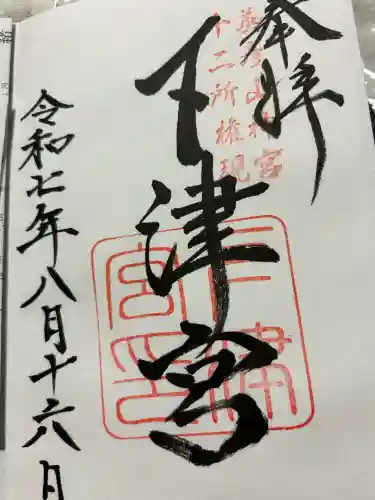 奉拝
英彦山神宮
十二所権現
下津宮
下津
宮印
令和七年八月十六日